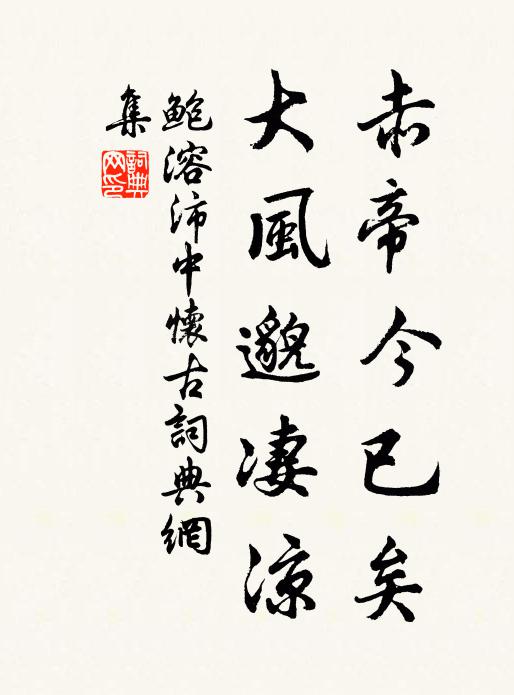 赤帝今已矣
大風邈凄涼
鮑溶沛中懷古詞典網
集
詞典网印